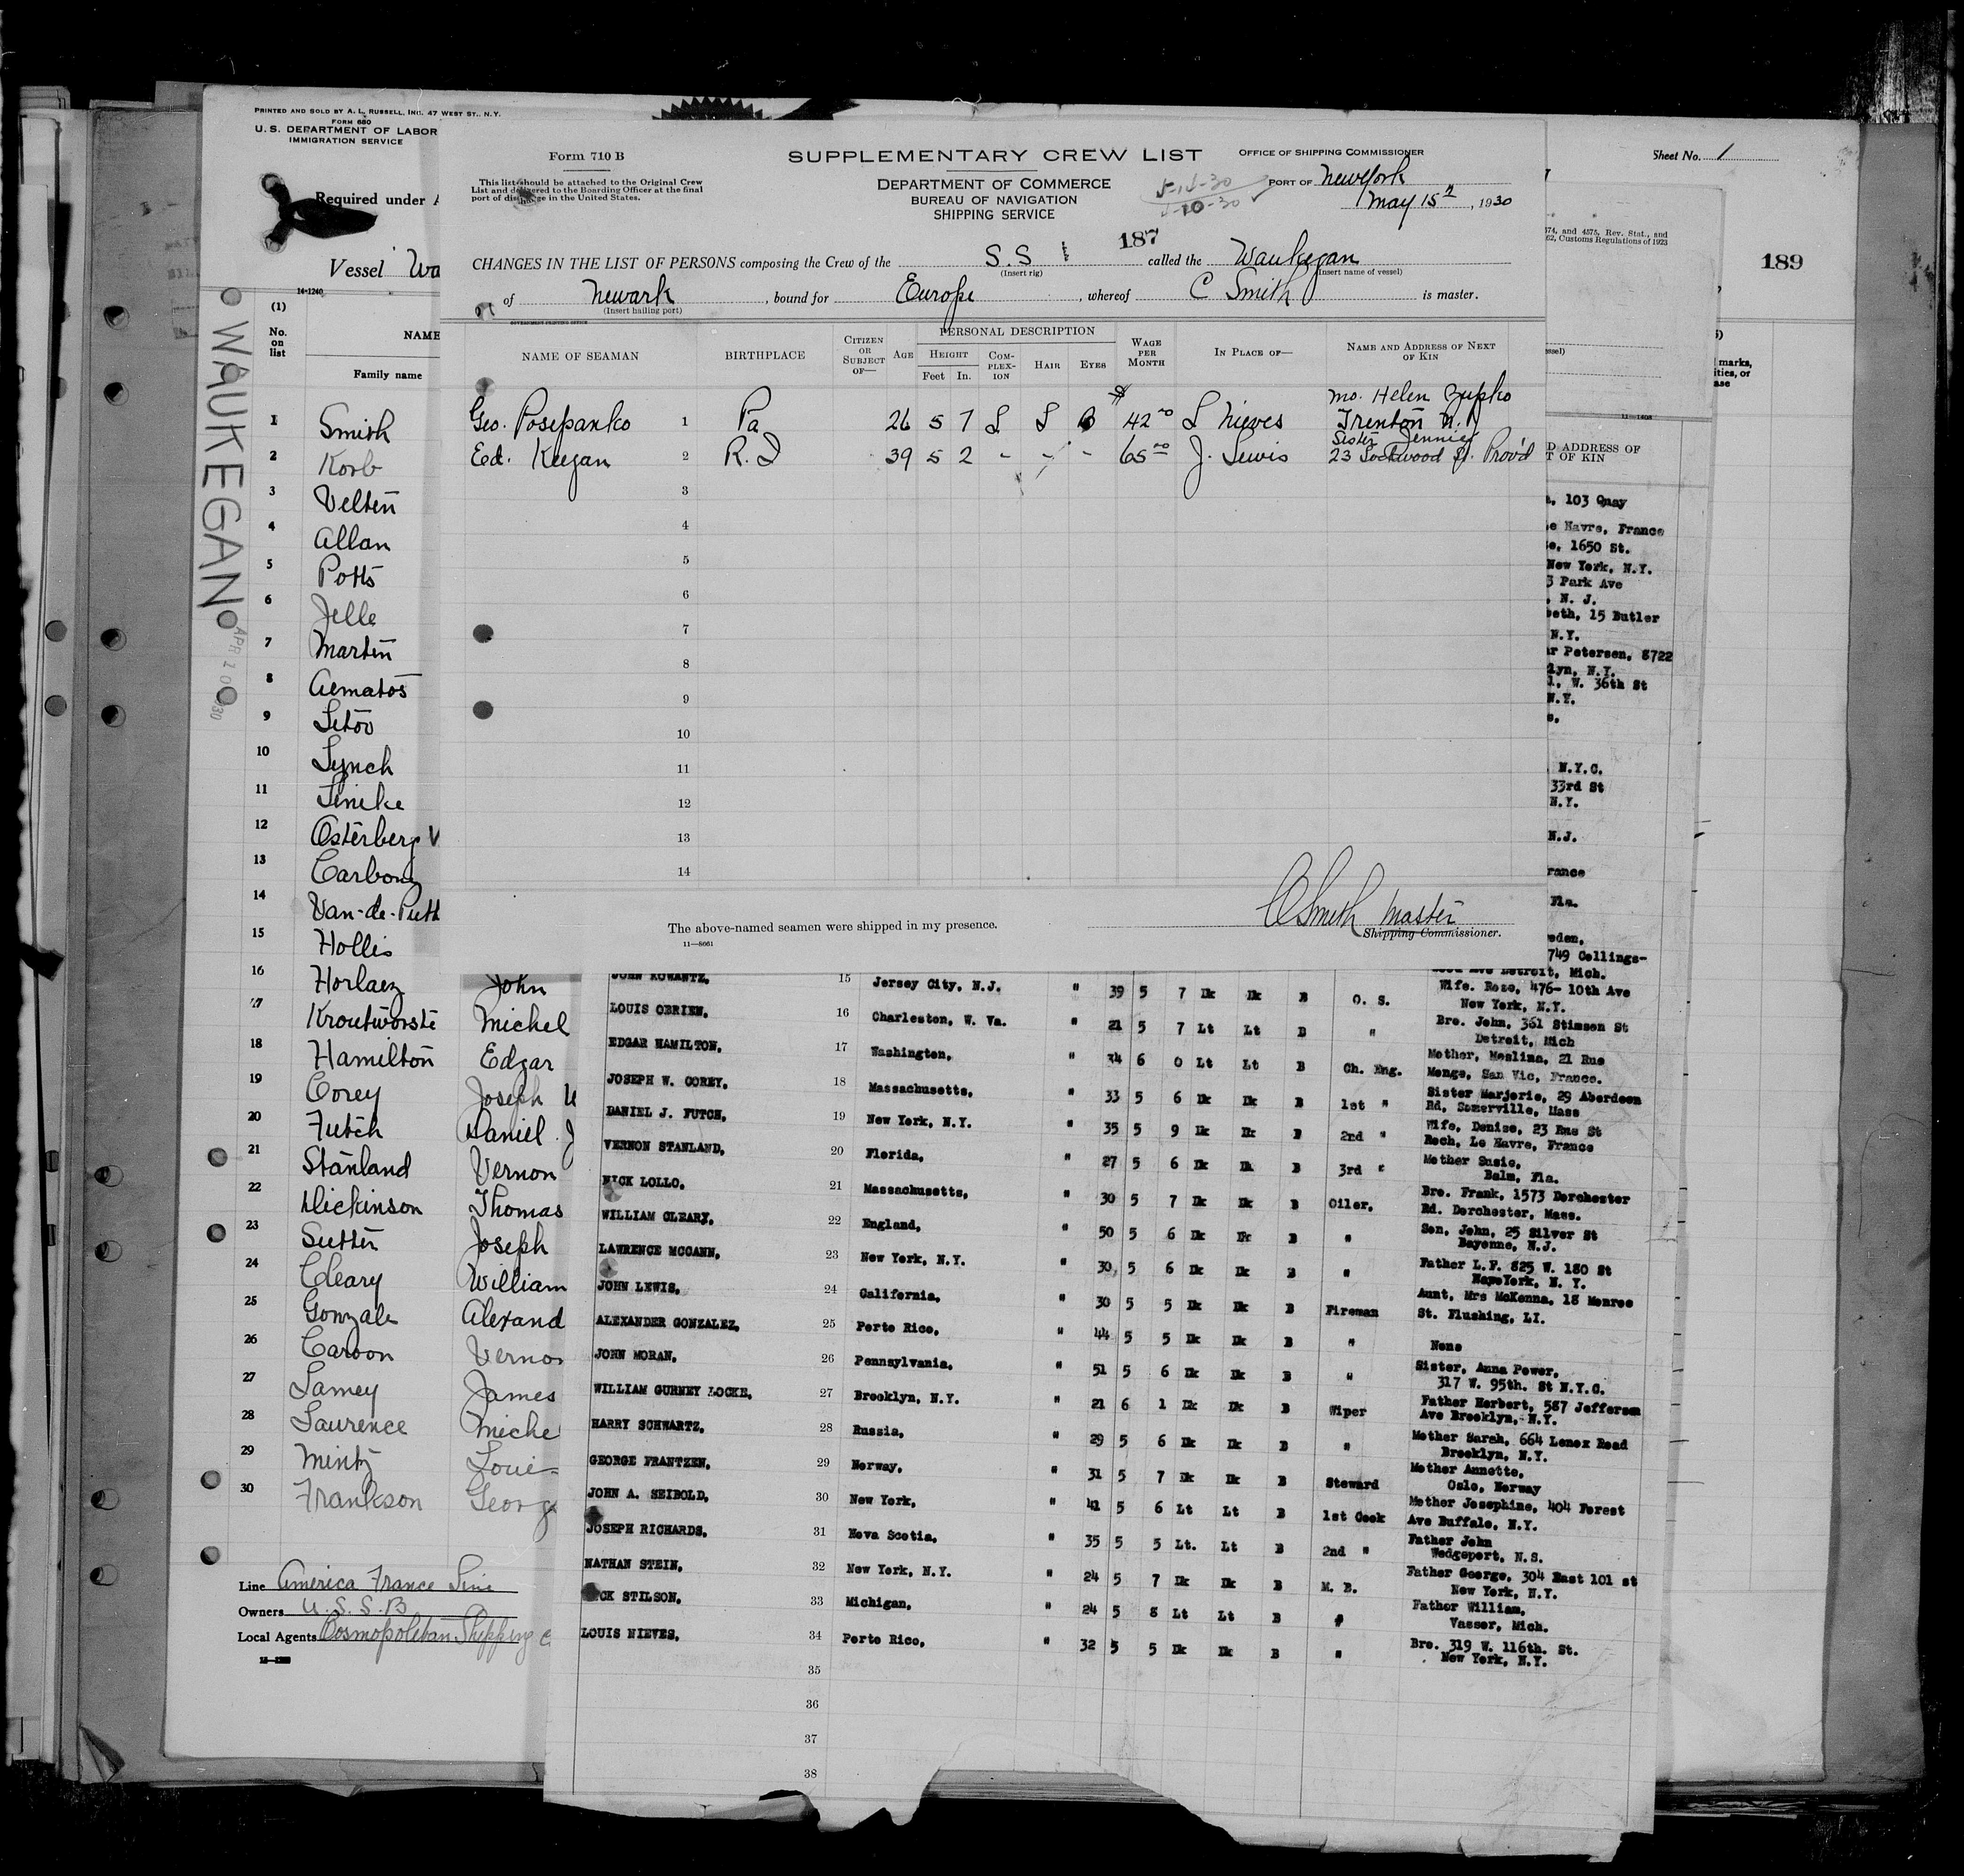 PRINTED AND SOLD BY A. L. RUSSELL, INC. 47 WEST ST., N.Y.
FORM 680
U. S. DEPARTMENT OF LABOR
IMMIGRATION SERVICE
Required under
Vessel Wa
14-1240
(1)
No. on list
NAME
Family name
WAUKEGAN
APR 10 30
1 Smith
2 Korb
3 Velten
4 Allan
5 Potts
6 Jelle
7 Marten
8 Aematos
9 Setov
10 Lynch
11 Lineke
12 Osterberg V
13 Carbony
14 Van-de-Putt
15 Hollis
16 Horlaez John
17 Kroutworste Michel
18 Hamilton Edgar
19 Corey Joseph W
20 Futch Daniel J
21 Stanland Vernon
22 Dickinson Thomas
23 Sutter Joseph
24 Cleary William
25 Gonzale Alexand
26 Caroon Verno
27 Lamey James
28 Laurence Miche
29 Mintz Loui
30 Frankson Georg
Line America France Line
Owners U. S. S. B
Local Agents Cosmopolitan Shipping C
Form 710 B
This list should be attached to the Original Crew
List and delivered to the Boarding Officer at the final
port of discharge in the United States.
SUPPLEMENTARY CREW LIST
DEPARTMENT OF COMMERCE
BUREAU OF NAVIGATION
SHIPPING SERVICE
OFFICE OF SHIPPING COMMISSIONER
PORT OF New York
May 15, 1930
5-10-30
187
CHANGES IN THE LIST OF PERSONS composing the Crew of the S.S called the Waukegan
(Insert rig) (Insert name of vessel)
of Newark, bound for Europe, whereof C Smith is master.
(Insert hailing port)
GOVERNMENT PRINTING OFFICE
NAME OF SEAMAN BIRTHPLACE CITIZEN OR SUBJECT OF— AGE PERSONAL DESCRIPTION HEIGHT Feet In. COMPLEXION HAIR EYES WAGE PER MONTH IN PLACE OF— NAME AND ADDRESS OF NEXT OF KIN
Mo. Helen Zupko
Geo. Posipanko 1 Pa 26 5 7 L L B $42.00 L Nieves Trenton N.J
Sister Jennie
Ed. Keegan 2 R.I 39 5 2 - - - 65.00 J. Lewis 23 Lockwood St. Prov'd
3
4
5
6
7
8
9
10
11
12
13
14
The above-named seamen were shipped in my presence.
11—8061
C Smith Master
Shipping Commissioner.
Sheet No. 1
374, and 4575, Rev. Stat., and
62, Customs Regulations of 1923
189
marks,
ities, or
ase
11-1408
D ADDRESS OF
T OF KIN
, 103 Quay
e Havre, France
e, 1650 St.
New York, N.Y.
3 Park Ave
, N. J.
beth, 15 Butler
N.Y.
r Petersen, 8722
lyn, N.Y.
l, W. 36th St
N.Y.
N.Y.C.
33rd St
N.Y.
N.J.
rance
Fla.
eden,
749 Collings-
Ave Detroit, Mich.
JOHN KOWANTZ, 15 Jersey City, N.J. " 39 5 7 Dk Dk B O. S. Wife. Rose, 476- 10th Ave
New York, N.Y.
LOUIS OBRIEN, 16 Charleston, W. Va. " 21 5 7 Lt Lt B " Bro. John, 361 Stimson St
Detroit, Mich
EDGAR HAMILTON, 17 Washington, " 34 6 0 Lt Lt B Ch. Eng. Mother, Meslina, 21 Rue
Monge, San Vic, France.
JOSEPH W. COREY, 18 Massachusetts, " 33 5 6 Dk Dk B 1st " Sister Marjorie, 29 Aberdeen
Rd, Somerville, Mass
DANIEL J. FUTCH, 19 New York, N.Y. " 35 5 9 Dk Dk B 2nd " Wife, Denise, 23 Rue St
Roch, Le Havre, France
VERNON STANLAND, 20 Florida, " 27 5 6 Dk Dk B 3rd " Mother Susie,
Balm, Fla.
NICK LOLLO, 21 Massachusetts, " 30 5 7 Dk Dk B Oiler, Bro. Frank, 1573 Dorchester
Rd. Dorchester, Mass.
WILLIAM CLEARY, 22 England, " 50 5 6 Dk Dk B " Son, John, 25 Silver St
Bayonne, N.J.
LAWRENCE MCCANN, 23 New York, N.Y. " 30, 5 6 Dk Dk B " Father L.F. 825 W. 180 St
New York, N. Y.
JOHN LEWIS, 24 California, " 30 5 5 Dk Dk B Fireman Aunt, Mrs McKenna, 18 Monroe
St. Flushing, LI.
ALEXANDER GONZALEZ, 25 Porto Rico, " 44 5 5 Dk Dk B " None
JOHN MORAN, 26 Pennsylvania, " 51 5 6 Dk Dk B " Sister, Anna Power,
317 W. 95th. St N.Y.C.
WILLIAM GURNEY LOCKE, 27 Brooklyn, N.Y. " 21 6 1 Dk Dk B Wiper Father Herbert, 587 Jefferson
Ave Brooklyn, N.Y.
HARRY SCHWARTZ, 28 Russia, " 29 5 6 Dk Dk B " Mother Sarah, 664 Lenox Road
Brooklyn, N.Y.
GEORGE FRANTZEN, 29 Norway, " 31 5 7 Dk Dk B Steward Mother Annette,
Oslo, Norway
JOHN A. SEIBOLD, 30 New York, " 41 5 6 Lt Lt B 1st Cook Mother Josephine, 404 Forest
Ave Buffalo, N.Y.
JOSEPH RICHARDS, 31 Nova Scotia, " 35 5 5 Lt. Lt B 2nd " Father John
Wedgeport, N.S.
NATHAN STEIN, 32 New York, N.Y. " 24 5 7 Dk Dk B M. B. Father George, 304 East 101 st
New York, N.Y.
CK STILSON, 33 Michigan, " 24 5 8 Lt Lt B " Father William,
Vassar, Mich.
LOUIS NIEVES, 34 Porto Rico, " 32 5 5 Dk Dk B " Bro. 319 W. 116th. St.
New York, N.Y.
35
36
37
38